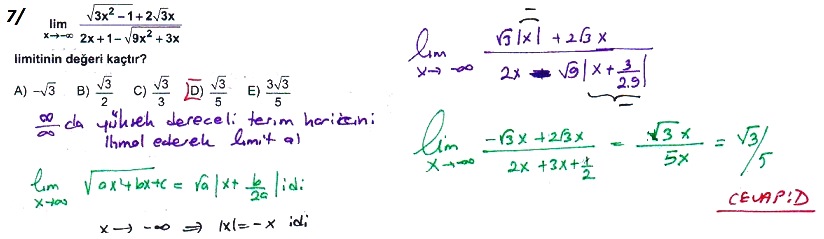 7/ lim x→-∞ √(3x² - 1) + 2√3x / 2x + 1 - √(9x² + 3x)
limitinin değeri kaçtır?
A) -√3 B) √3/2 C) √3/3 D) √3/5 E) 3√3/5
∞/∞ da yüksek dereceli terim haricini
ihmal ederek limit al
lim x→∞ √(ax²+bx+c) = √a |x + b/2a| idi
x → -∞ ⇒ |x| = -x idi
lim x→ -∞ √3|x| + 2√3 x / 2x - √9 |x + 3/2.9|
lim x→-∞ -√3x + 2√3x / 2x + 3x + 1/2 = √3 x / 5x = √3/5
CEVAP: D